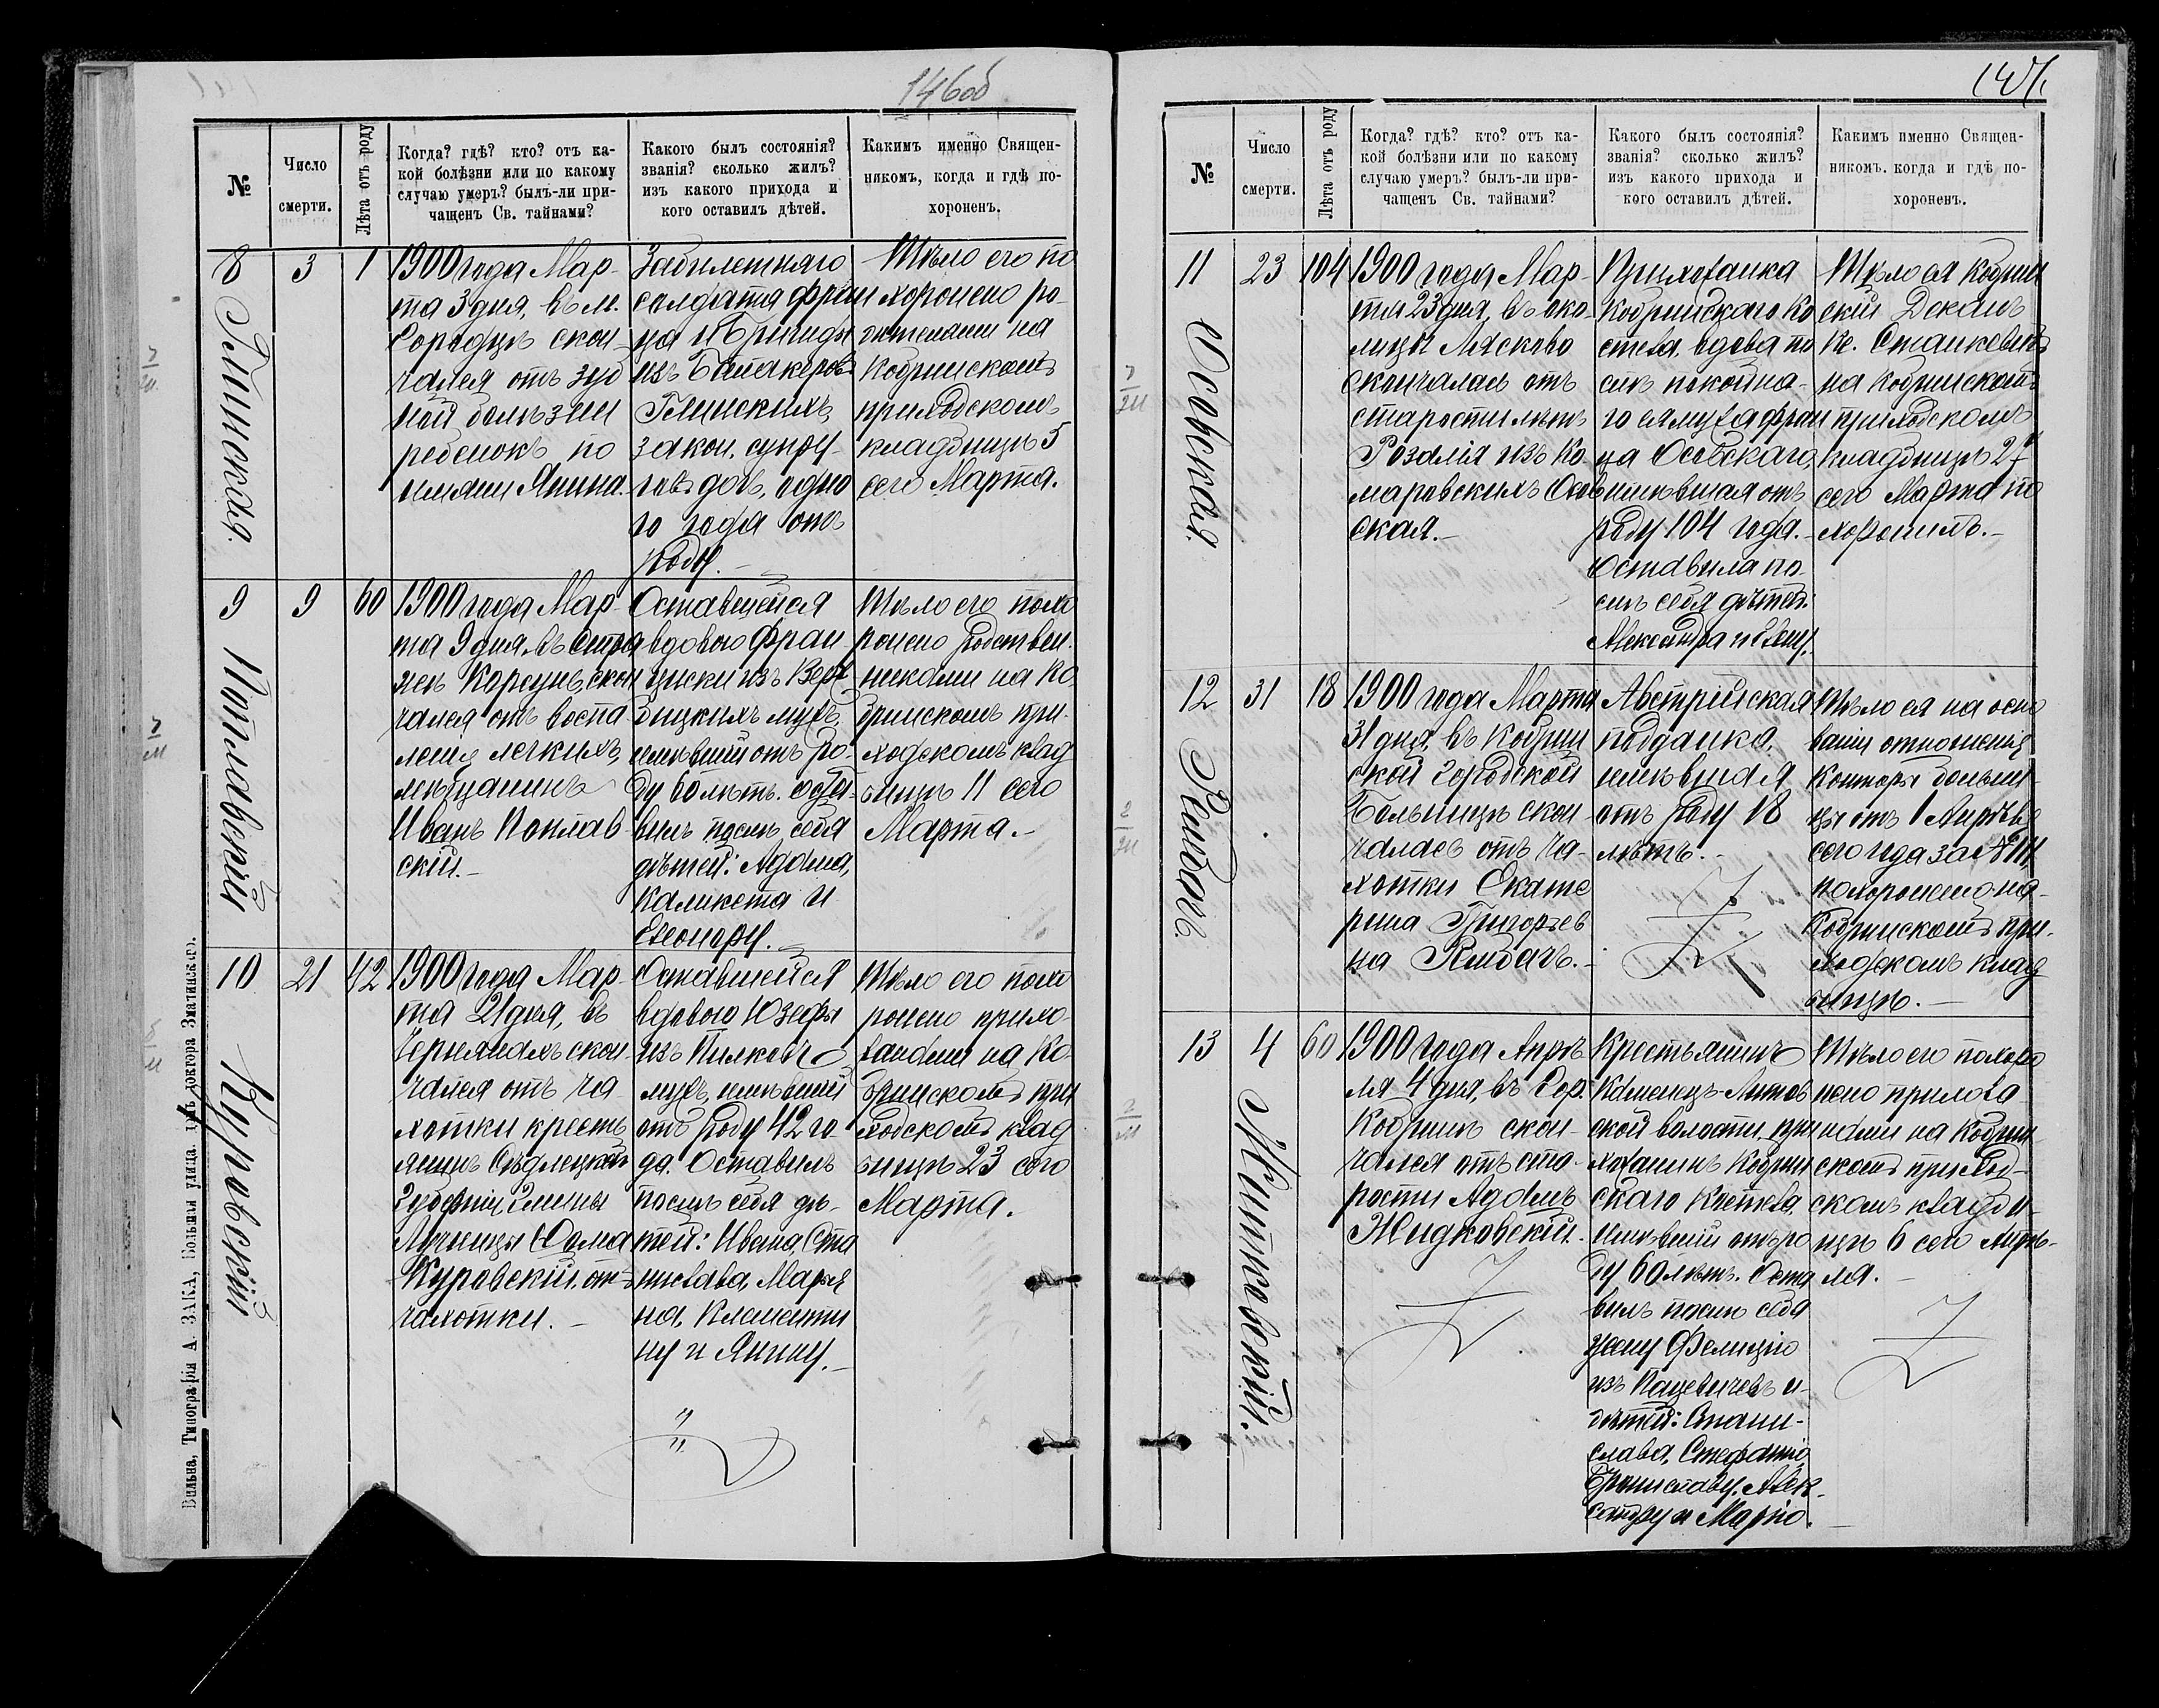 146об
№
Число
смерти.
Лѣта отъ роду
Когда? гдѣ? кто? отъ ка-
кой болѣзни или по какому
случаю умеръ? былъ-ли при-
чащенъ Св. тайнами?
Какого былъ состоянія?
званія? сколько жилъ?
изъ какого прихода и
кого оставилъ дѣтей.
Какимъ именно Священ-
никомъ, когда и гдѣ по-
хороненъ.
8
Глинская.
3
1
1900 года Мар-
та 3 дня, въ м.
Городцѣ скон-
чался отъ зуб
ной болѣзни
ребенокъ по
имени Янина.
Забилетнаго
солдата Фран
ца и Бригиды
изъ
Глинскихъ,
закон. супру-
говъ дочь, одно
го года отъ
роду.-
Тѣло его по
хоронено ро-
дителями на
Кобринскомъ
приходскомъ
кладбищѣ 5
сего Марта.
9
Поплавскій
9
60
1900 года Мар-
та 9 дня, въ
скон
чался отъ воспа
ленія легкихъ,
мѣщанинъ
Иванъ Поплав
скій.-
Оставшейся
вдовою Фран
циски изъ Верж
бицкихъ мужъ,
имѣвшій отъ ро-
ду 60 лѣтъ. оста-
вилъ послѣ себя
дѣтей: Адама,
Каликста и
Елеонору.
Тѣло его похо
ронено родствен
никами на Ко-
бринскомъ при-
ходскомъ клад
бищѣ 11 сего
Марта.-
10
Куровскій
21
42
1900 года Мар-
та 21 дня, въ
скон-
чался отъ ча-
хотки кресть
янинъ Сѣдлецкой
Губерніи, Гмины
Фома
Куровскій. отъ
чахотки.-
Оставшейся
вдовою Юзефы
изъ
мужъ, имѣвшій
отъ роду 42 го-
да. Оставилъ
послѣ себя дѣ-
тей: Ивана, Ста
нислава, Марья
на, Клементи
ну и Янину.-
Тѣло его похо
ронено прихо-
жанами на Ко-
бринскомъ при
ходскомъ клад
бищѣ 23 сего
Марта.
Вильна, Типографія А. ЗАКА, Большая улица.
№
Число
смерти.
Лѣта отъ роду
Когда? гдѣ? кто? отъ ка-
кой болѣзни или по какому
случаю умеръ? былъ-ли при-
чащенъ Св. тайнами?
Какого былъ состоянія?
званія? сколько жилъ?
изъ какого прихода и
кого оставилъ дѣтей.
Какимъ именно Священ-
никомъ. когда и гдѣ по-
хороненъ.
11
Осовская.
23
104
1900 года Мар-
та 23 дня, въ око-
лицы Лясково
скончалась отъ
старости лѣтъ
Розалія изъ Ко-
маровскихъ Осов
ская.-
Прихожанка
Кобринскаго Ко
стела, вдова по
слѣ покойна-
го ея мужа Фран
ца Осовскаго,
имѣвшая отъ
роду 104 года.-
Оставила по
слѣ себя дѣтей:
Александра и
Тѣло ея Кобрин
скій Деканъ
Кс. Станкевичъ
на Кобринскомъ
приходскомъ
кладбищѣ 27
сего Марта по
хоронилъ.-
12
31
18
1900 года Марта
31 дня, въ Кобрин
ской городской
Больницѣ скон-
чалась отъ ча-
хотки Екате
рина Григорьев
на
Австрійская
подданка,
имѣвшая
отъ роду 18
лѣтъ.-
Тѣло ея на осно
ваніи отношенія
Конторы больни-
цы отъ 1 Апрѣля
сего года за №
похоронено на
Кобринскомъ при-
ходскомъ клад
бищѣ.-
13
Житковскій.
4
60
1900 года Апрѣ
ля 4 дня, въ Гор.
Кобринѣ скон-
чался отъ ста-
рости Адамъ
Жидковскій.
Крестьянинъ
Каменецъ-Литов
ской волости, при
хожанинъ Кобрин
скаго Костела,
имѣвшій отъ ро
ду 60 лѣтъ. Оста
вилъ послѣ себя
жену Фелицію
изъ Пацевичевъ и
дѣтей: Стани-
слава, Стефанію,
Брониславу, Алек-
сандру и Марію.
Тѣло его похоро
нено прихожа-
нами на Кобрин
скомъ приход-
скомъ кладби-
щѣ 6 сего Апрѣ-
ля.-